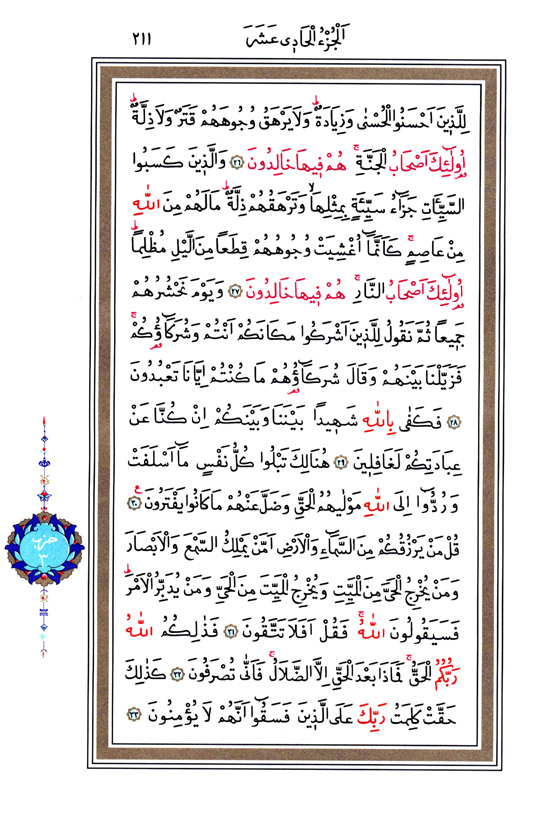 اَلْجُزْءُ الْحَادِى عَشَرَ ٢١١
لِلَّذِينَ اَحْسَنُوا الْحُسْنٰى وَزِيَادَةٌۜ وَلَا يَرْهَقُ وُجُوهَهُمْ قَتَرٌ وَلَا ذِلَّةٌۜ
اُو۬لٰٓئِكَ اَصْحَابُ الْجَنَّةِۚ هُمْ فِيهَا خَالِدُونَ ﴿٢٦﴾ وَالَّذِينَ كَسَبُوا
السَّيِّـَٔاتِ جَزَٓاءُ سَيِّئَةٍ بِمِثْلِهَاۙ وَتَرْهَقُهُمْ ذِلَّةٌۜ مَا لَهُمْ مِنَ اللّٰهِ
مِنْ عَاصِمٍۚ كَاَنَّمَٓا اُغْشِيَتْ وُجُوهُهُمْ قِطَعًا مِنَ الَّيْلِ مُظْلِمًاۜ
اُو۬لٰٓئِكَ اَصْحَابُ النَّارِۚ هُمْ فِيهَا خَالِدُونَ ﴿٢٧﴾ وَيَوْمَ نَحْشُرُهُمْ
جَمِيعًا ثُمَّ نَقُولُ لِلَّذِينَ اَشْرَكُوا مَكَانَكُمْ اَنْتُمْ وَشُرَكَٓاؤُ۬كُمْۚ
فَزَيَّلْنَا بَيْنَهُمْ وَقَالَ شُرَكَٓاؤُ۬هُمْ مَا كُنْتُمْ اِيَّانَا تَعْبُدُونَ
﴿٢٨﴾ فَكَفٰى بِاللّٰهِ شَهِيدًا بَيْنَنَا وَبَيْنَكُمْ اِنْ كُنَّا عَنْ
عِبَادَتِكُمْ لَغَافِلِينَ ﴿٢٩﴾ هُنَالِكَ تَبْلُوا كُلُّ نَفْسٍ مَٓا اَسْلَفَتْ
وَرُدُّٓوا اِلَى اللّٰهِ مَوْلٰيهُمُ الْحَقِّ وَضَلَّ عَنْهُمْ مَا كَانُوا يَفْتَرُونَ ﴿٣٠﴾
قُلْ مَنْ يَرْزُقُكُمْ مِنَ السَّمَٓاءِ وَالْاَرْضِ اَمَّنْ يَمْلِكُ السَّمْعَ وَالْاَبْصَارَ
وَمَنْ يُخْرِجُ الْحَيَّ مِنَ الْمَيِّتِ وَيُخْرِجُ الْمَيِّتَ مِنَ الْحَيِّ وَمَنْ يُدَبِّرُ الْاَمْرَۜ
فَسَيَقُولُونَ اللّٰهُۚ فَقُلْ اَفَلَا تَتَّقُونَ ﴿٣١﴾ فَذٰلِكُمُ اللّٰهُ
رَبُّكُمُ الْحَقُّۚ فَمَاذَا بَعْدَ الْحَقِّ اِلَّا الضَّلَالُۚ فَاَنّٰى تُصْرَفُونَ ﴿٣٢﴾ كَذٰلِكَ
حَقَّتْ كَلِمَتُ رَبِّكَ عَلَى الَّذِينَ فَسَقُٓوا اَنَّهُمْ لَا يُؤْمِنُونَ ﴿٣٣﴾
حزب
٣